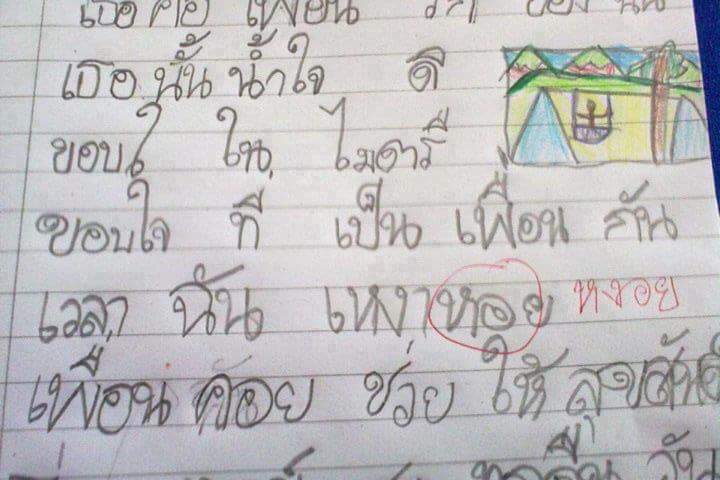 เธอ คือ เพื่อน
เธอ นั้น น้ำใจ ดี
ขอบใ ใน ไมตรี
ขอบใจ ที่ เป็น เพื่อน กัน
เวลา ฉัน เหงาหอย หงอย
เพื่อน คอย ช่วย ให้ สุขสันต์